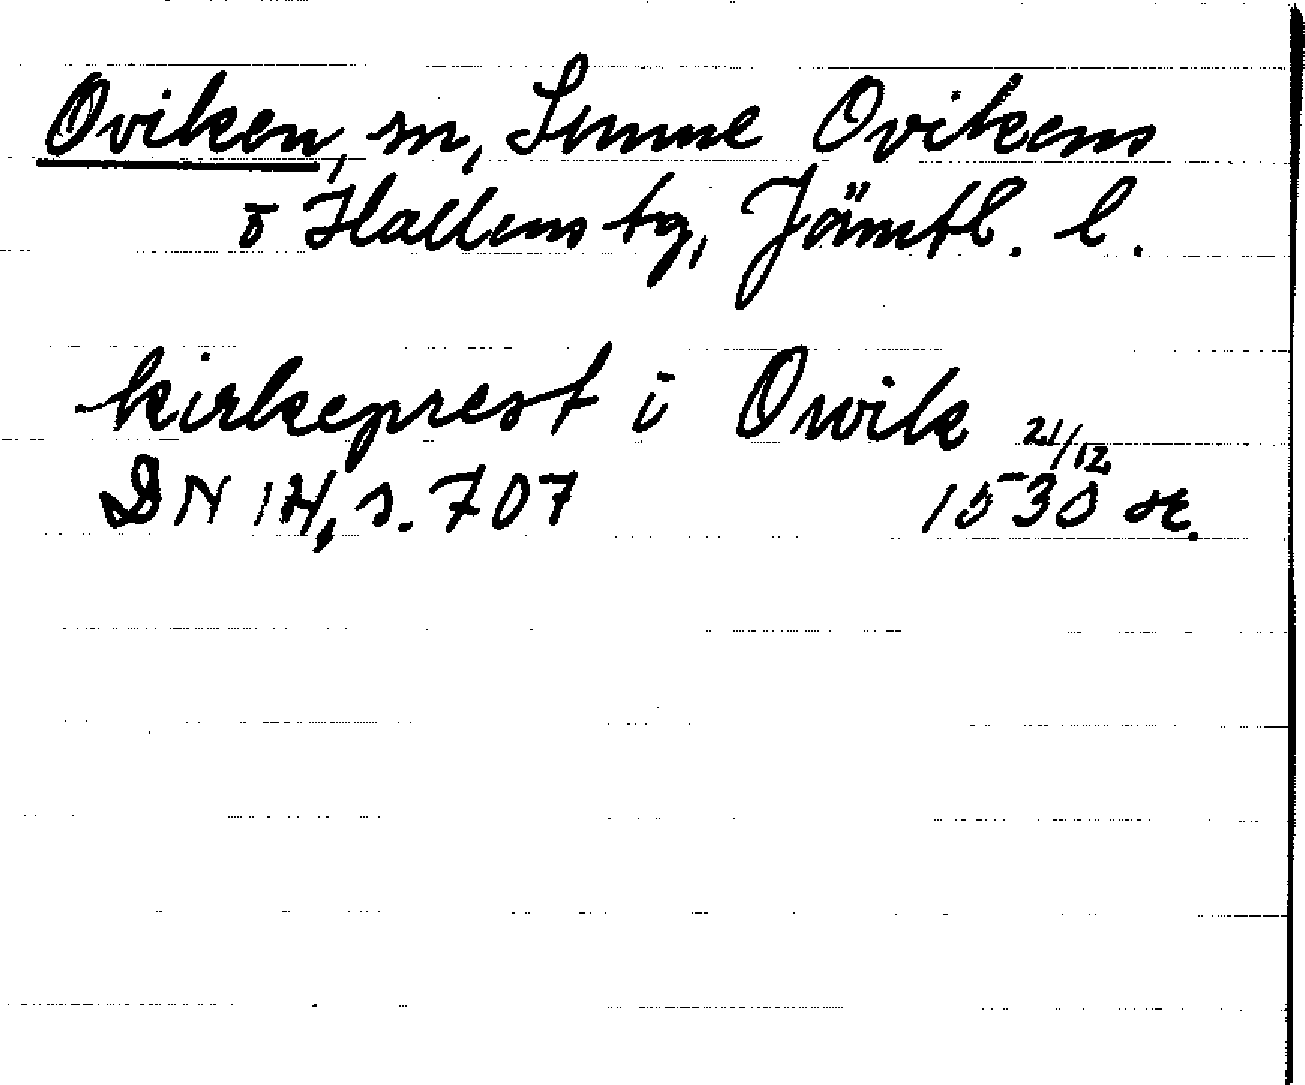 Oviken, sn, Sunne Ovikens
o Hallens tg, Jämtl. l.
kirkeprest i Owik 21/12
DN 14, s. 707 1530 or.